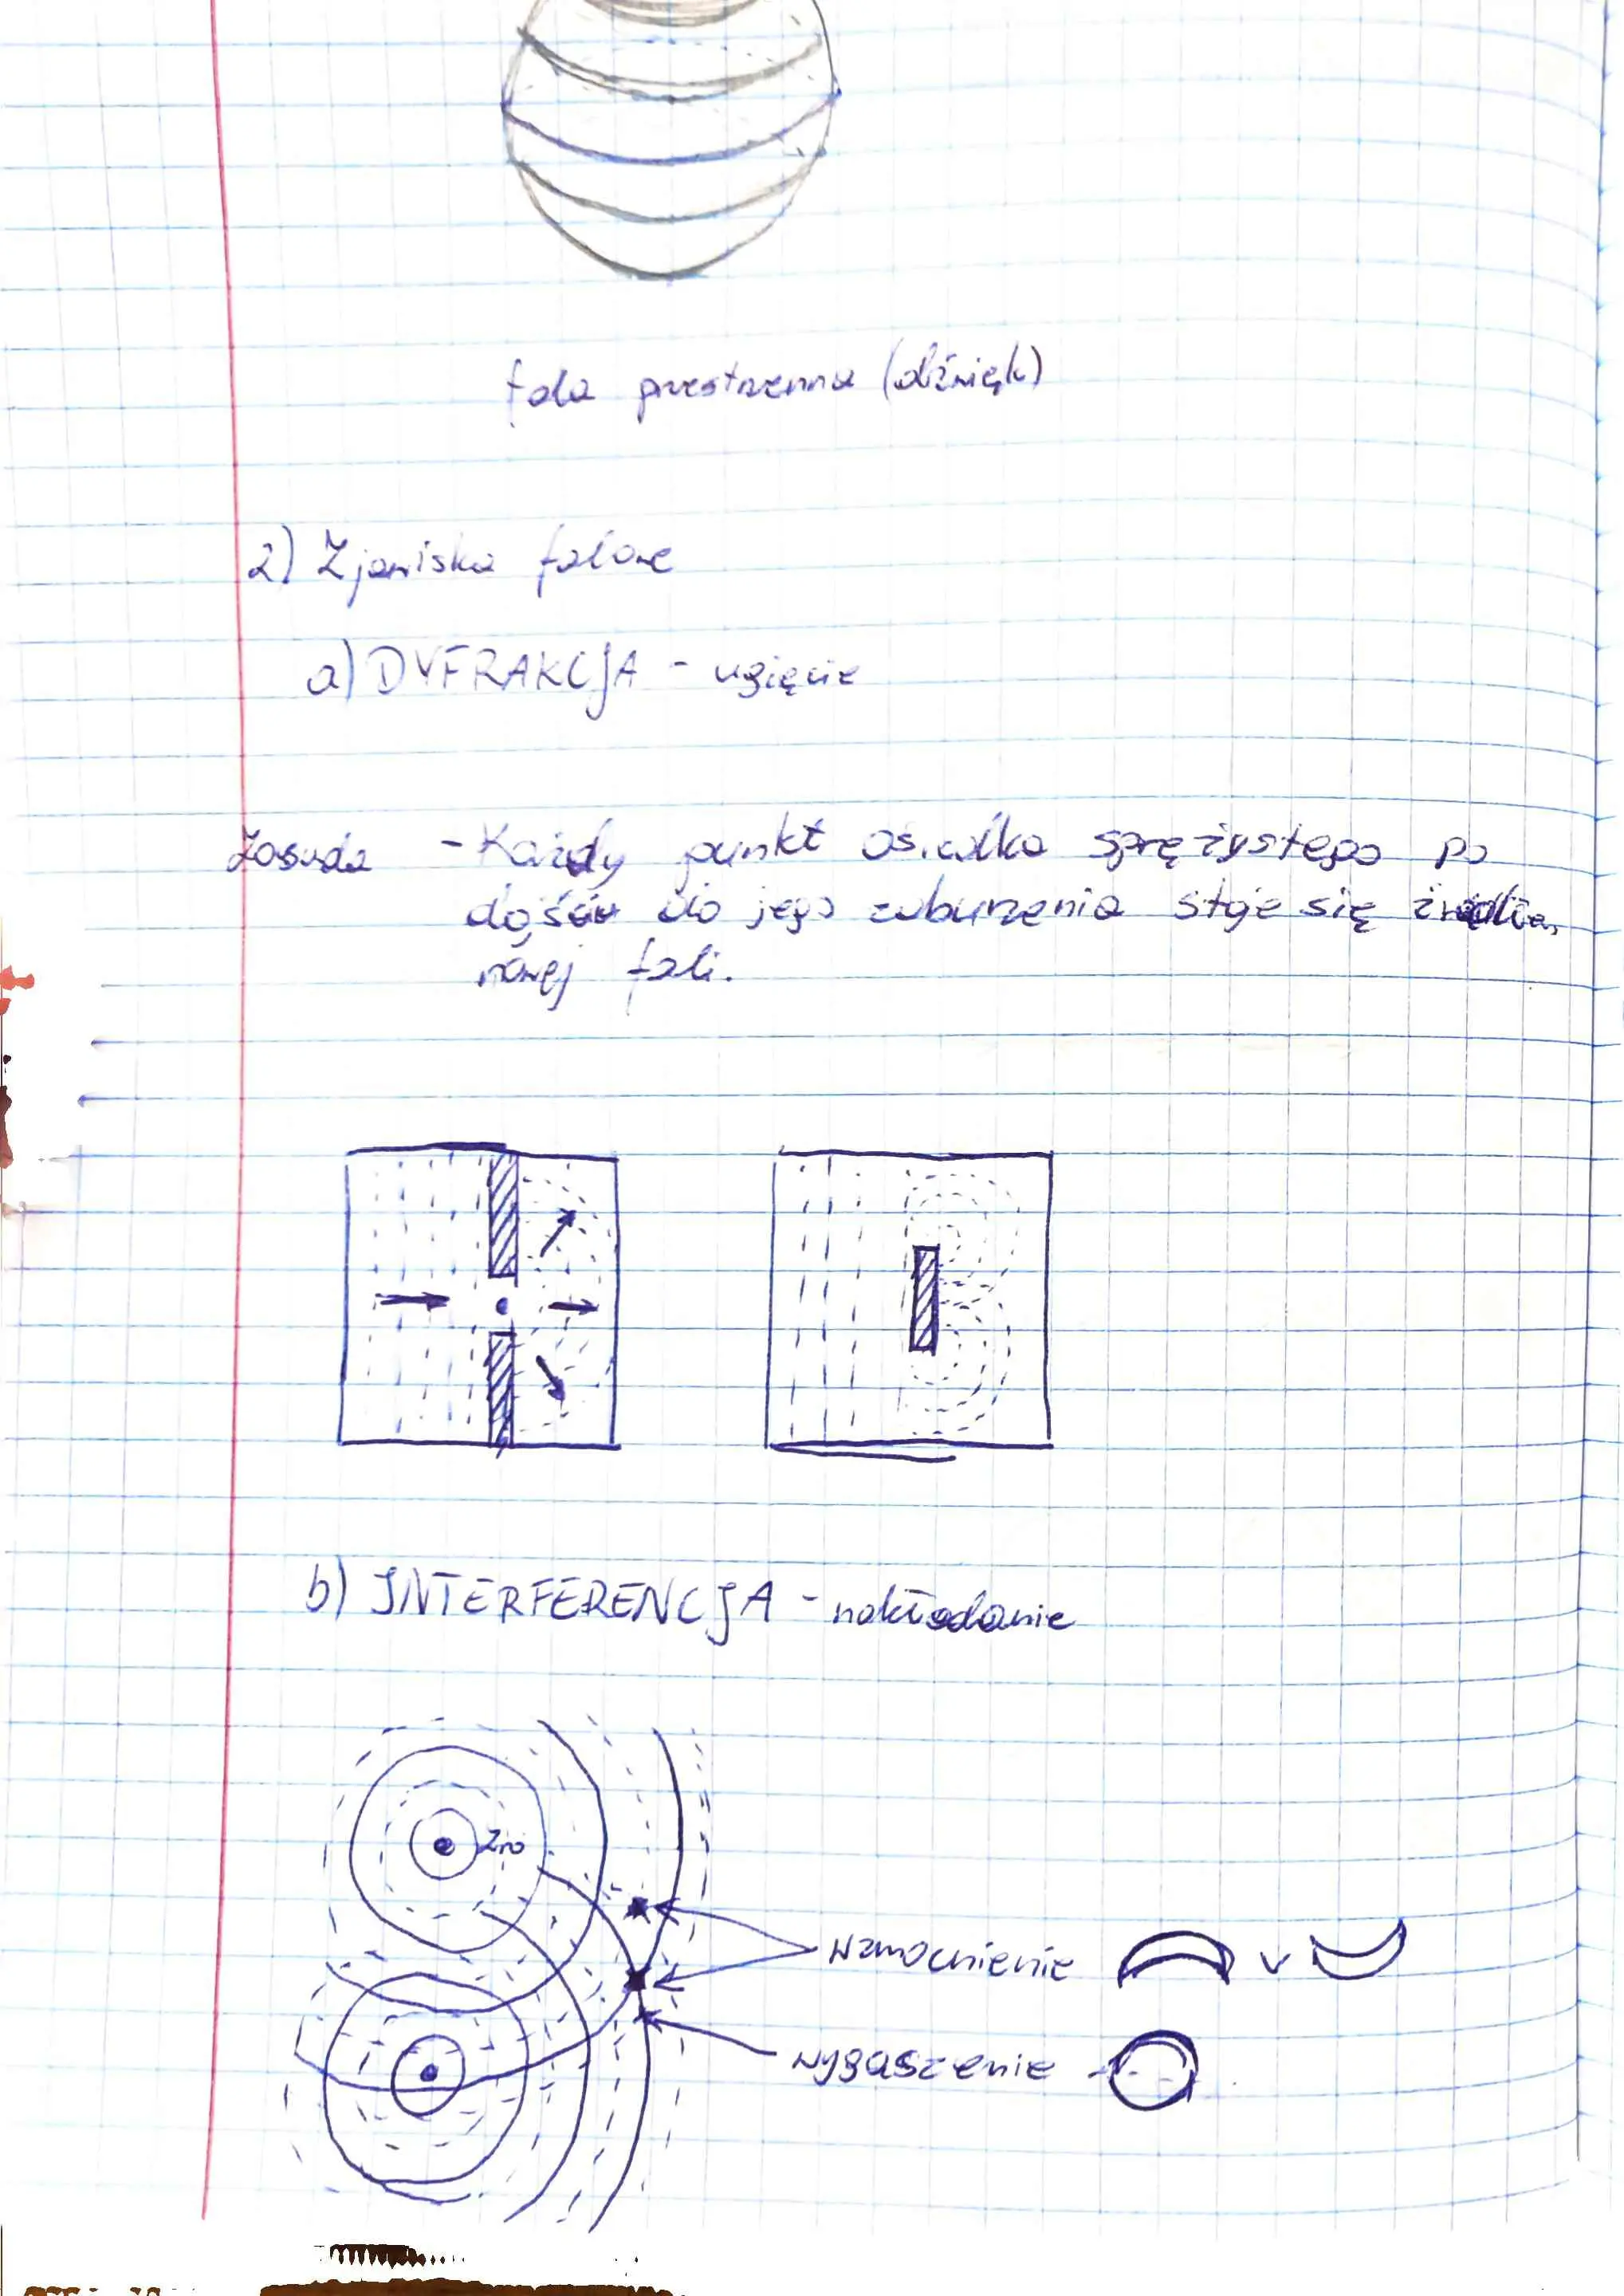 fala przestrzenna (dźwięk)
2) Zjawiska falowe
a) DYFRAKCJA - ugięcie
Zasada - Każdy punkt ośrodka sprężystego po
dojściu do jego zaburzenia staje się źródłem
nowej fali.
b) INTERFERENCJA - nakładanie
Źró
wzmocnienie v
wygaszenie